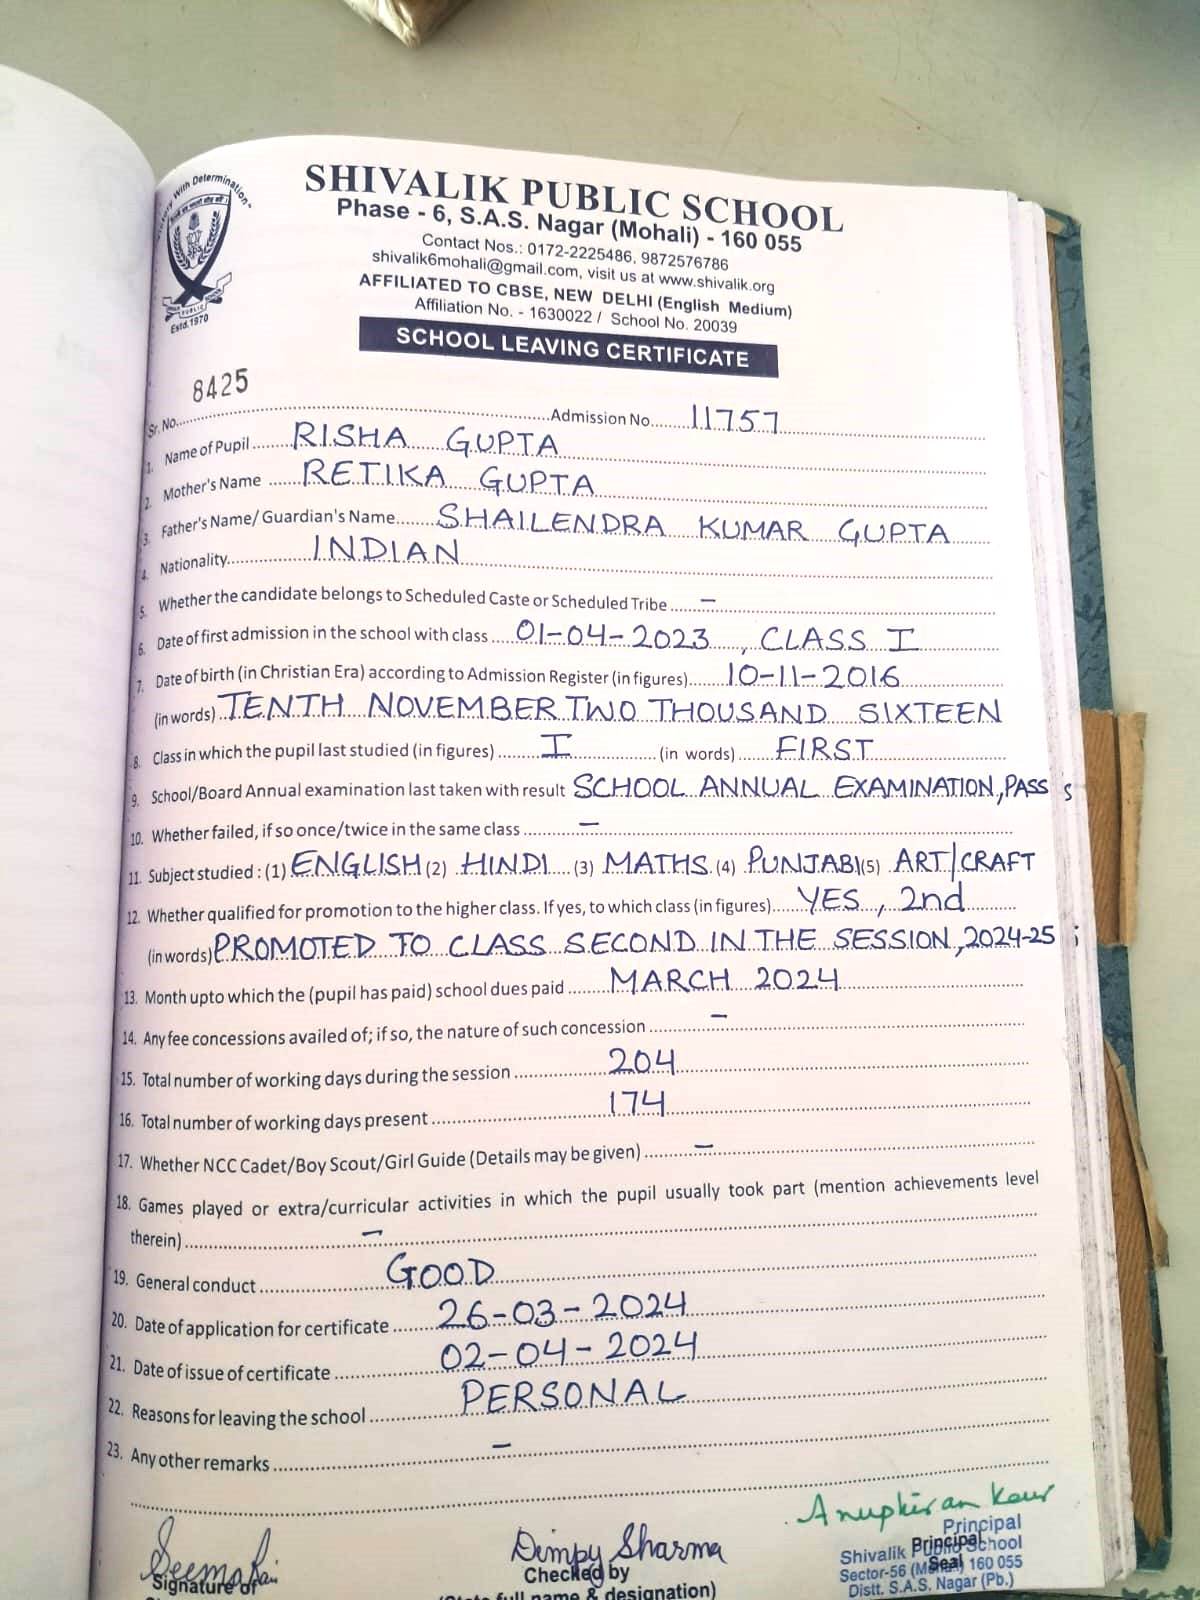 With Determination"
PUBLIC
Estd.1970
SHIVALIK PUBLIC SCHOOL
Phase - 6, S.A.S. Nagar (Mohali) - 160 055
Contact Nos.: 0172-2225486, 9872576786
shivalik6mohali@gmail.com, visit us at www.shivalik.org
AFFILIATED TO CBSE, NEW DELHI (English Medium)
Affiliation No. - 1630022 / School No. 20039
SCHOOL LEAVING CERTIFICATE
Sr. No. 8425 Admission No. 11757
1. Name of Pupil RISHA GUPTA
2. Mother's Name RETIKA GUPTA
3. Father's Name/ Guardian's Name SHAILENDRA KUMAR GUPTA
4. Nationality INDIAN
5. Whether the candidate belongs to Scheduled Caste or Scheduled Tribe –
6. Date of first admission in the school with class 01-04-2023, CLASS I
7. Date of birth (in Christian Era) according to Admission Register (in figures) 10-11-2016
(in words) TENTH NOVEMBER TWO THOUSAND SIXTEEN
8. Class in which the pupil last studied (in figures) I (in words) FIRST
9. School/Board Annual examination last taken with result SCHOOL ANNUAL EXAMINATION, PASS
10. Whether failed, if so once/twice in the same class –
11. Subject studied : (1) ENGLISH (2) HINDI (3) MATHS (4) PUNJABI (5) ART/CRAFT
12. Whether qualified for promotion to the higher class. If yes, to which class (in figures) YES, 2nd
(in words) PROMOTED TO CLASS SECOND IN THE SESSION, 2024-25
13. Month upto which the (pupil has paid) school dues paid MARCH 2024
14. Any fee concessions availed of; if so, the nature of such concession –
15. Total number of working days during the session 204
16. Total number of working days present 174
17. Whether NCC Cadet/Boy Scout/Girl Guide (Details may be given) –
18. Games played or extra/curricular activities in which the pupil usually took part (mention achievements level
therein) –
19. General conduct GOOD
20. Date of application for certificate 26-03-2024
21. Date of issue of certificate 02-04-2024
22. Reasons for leaving the school PERSONAL
23. Any other remarks –
Anupkiran Kaur
Seema Dimpy Sharma
Principal
Shivalik Public School
Sector-56 (Mohali) 160 055
Distt. S.A.S. Nagar (Pb.)
Principal
Seal
Signature of Checked by
full name & designation)